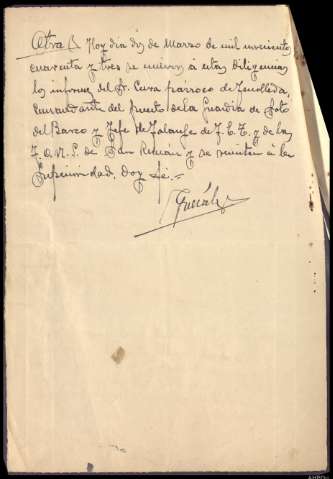 Otra / Hoy dia diz de Marzo de mil novecientos
cuarenta y tres se unieron a estas diligencias
los informes del Sr. Cura párroco de
Comandante del puesto de la Guardia de Soto
del Barco y Jefe de Falange de F.E.T. y de las
J.O.N.S. de San Román y se remiten á la
Superioridad. Doy fé.=